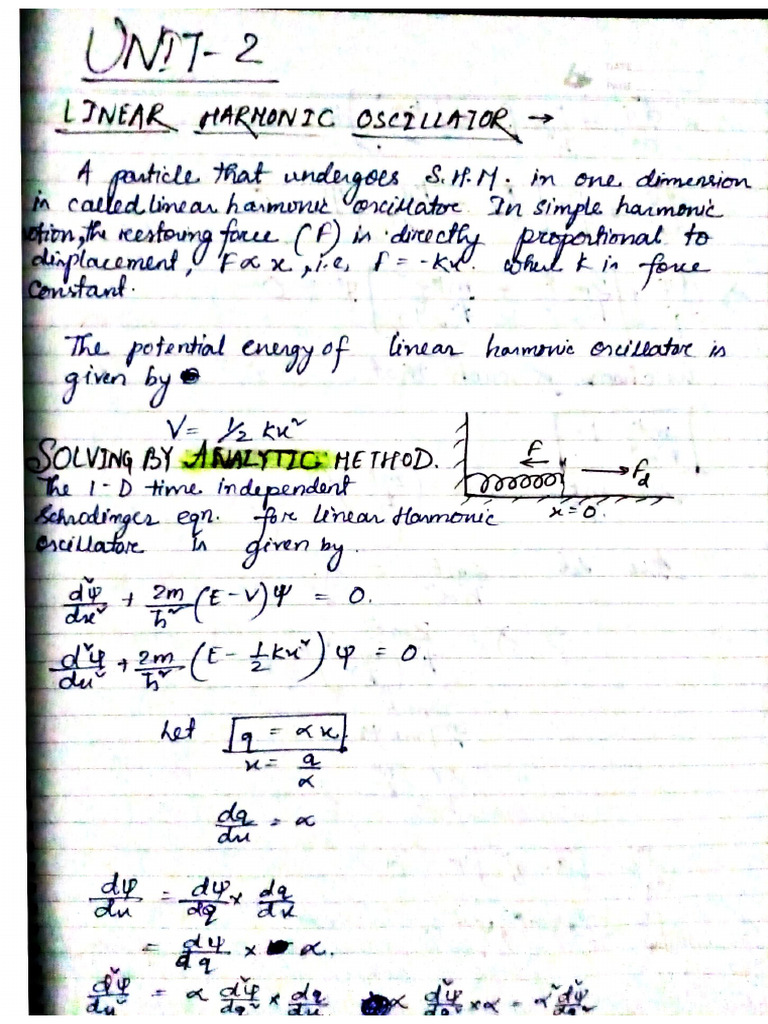 UNIT-2
LINEAR HARMONIC OSCILLATOR →
A particle that undergoes S.H.M. in one dimension
is called linear harmonic oscillator. In simple harmonic
otion, the restoring force (F) is directly proportional to
displacement, F∝x, i.e, F = -Kx. where K is force
constant.
The potential energy of linear harmonic oscillator is
given by
V = 1/2 kx²
SOLVING BY ANALYTIC METHOD.
F
Fd
x=0
The 1-D time independent
Schrodinger eqn. for linear Harmonic
oscillator is given by.
d²ψ/dx² + 2m/ħ² (E-V)ψ = 0.
d²ψ/dx² + 2m/ħ² (E - 1/2 kx²) ψ = 0.
Let q = αx
x = q/α
dq/dx = α
dψ/dx = dψ/dq × dq/dx
= dψ/dq × α.
d²ψ/dx² = α d²ψ/dq² × dq/dx α d²ψ/dq² × α = α² d²ψ/dq²